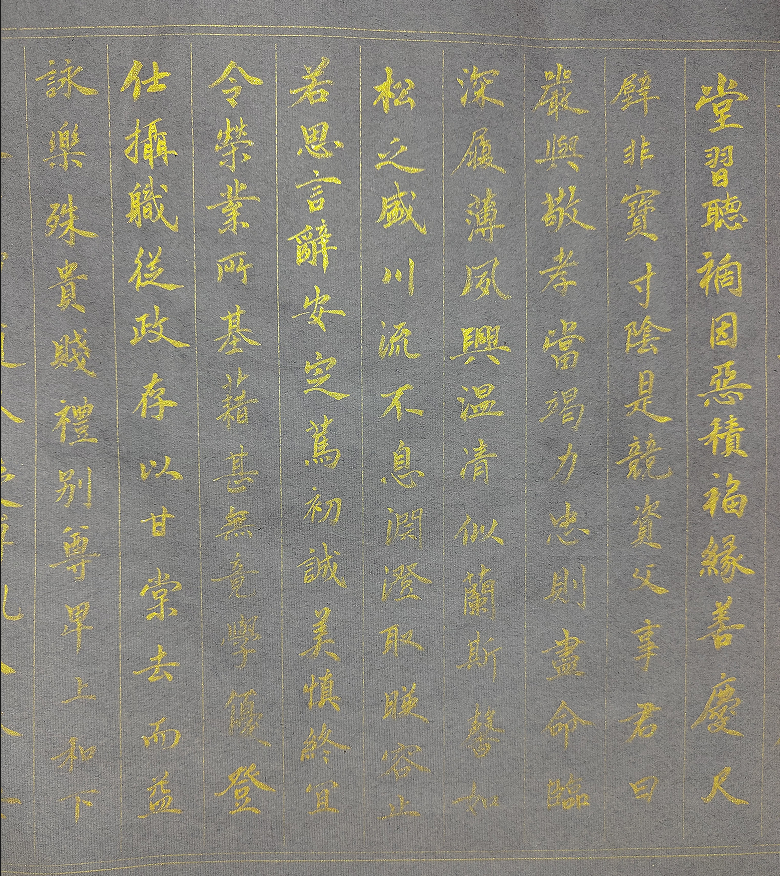 堂習聴禍因惡積福緣善慶尺
璧非寶寸陰是競資父事君曰
嚴與敬孝當竭力忠則盡命臨
深履薄夙興温清似蘭斯馨如
松之盛川流不息淵澄取暎容止
若思言辭安定篤初誠美慎終宜
令榮業所基藉甚無竟學優登
仕攝職從政存以甘棠去而益
詠楽殊貴賤禮别尊卑上和下